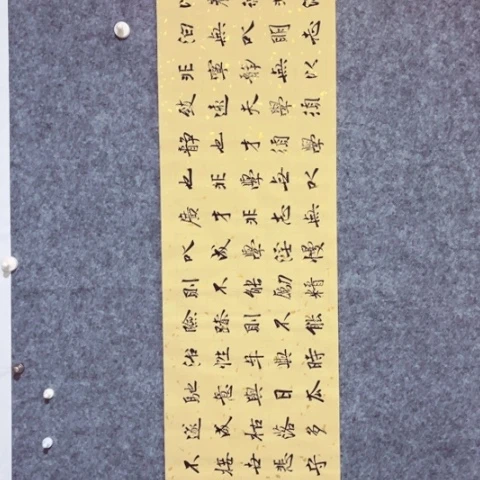 泊無以明志
非寧靜無以
致遠夫學須
靜也才須學
也非學無以
廣才非志無
以成學淫慢
則不能勵精
險躁則不能
治性年與時
馳意與日去
遂成枯落多
不接世悲守